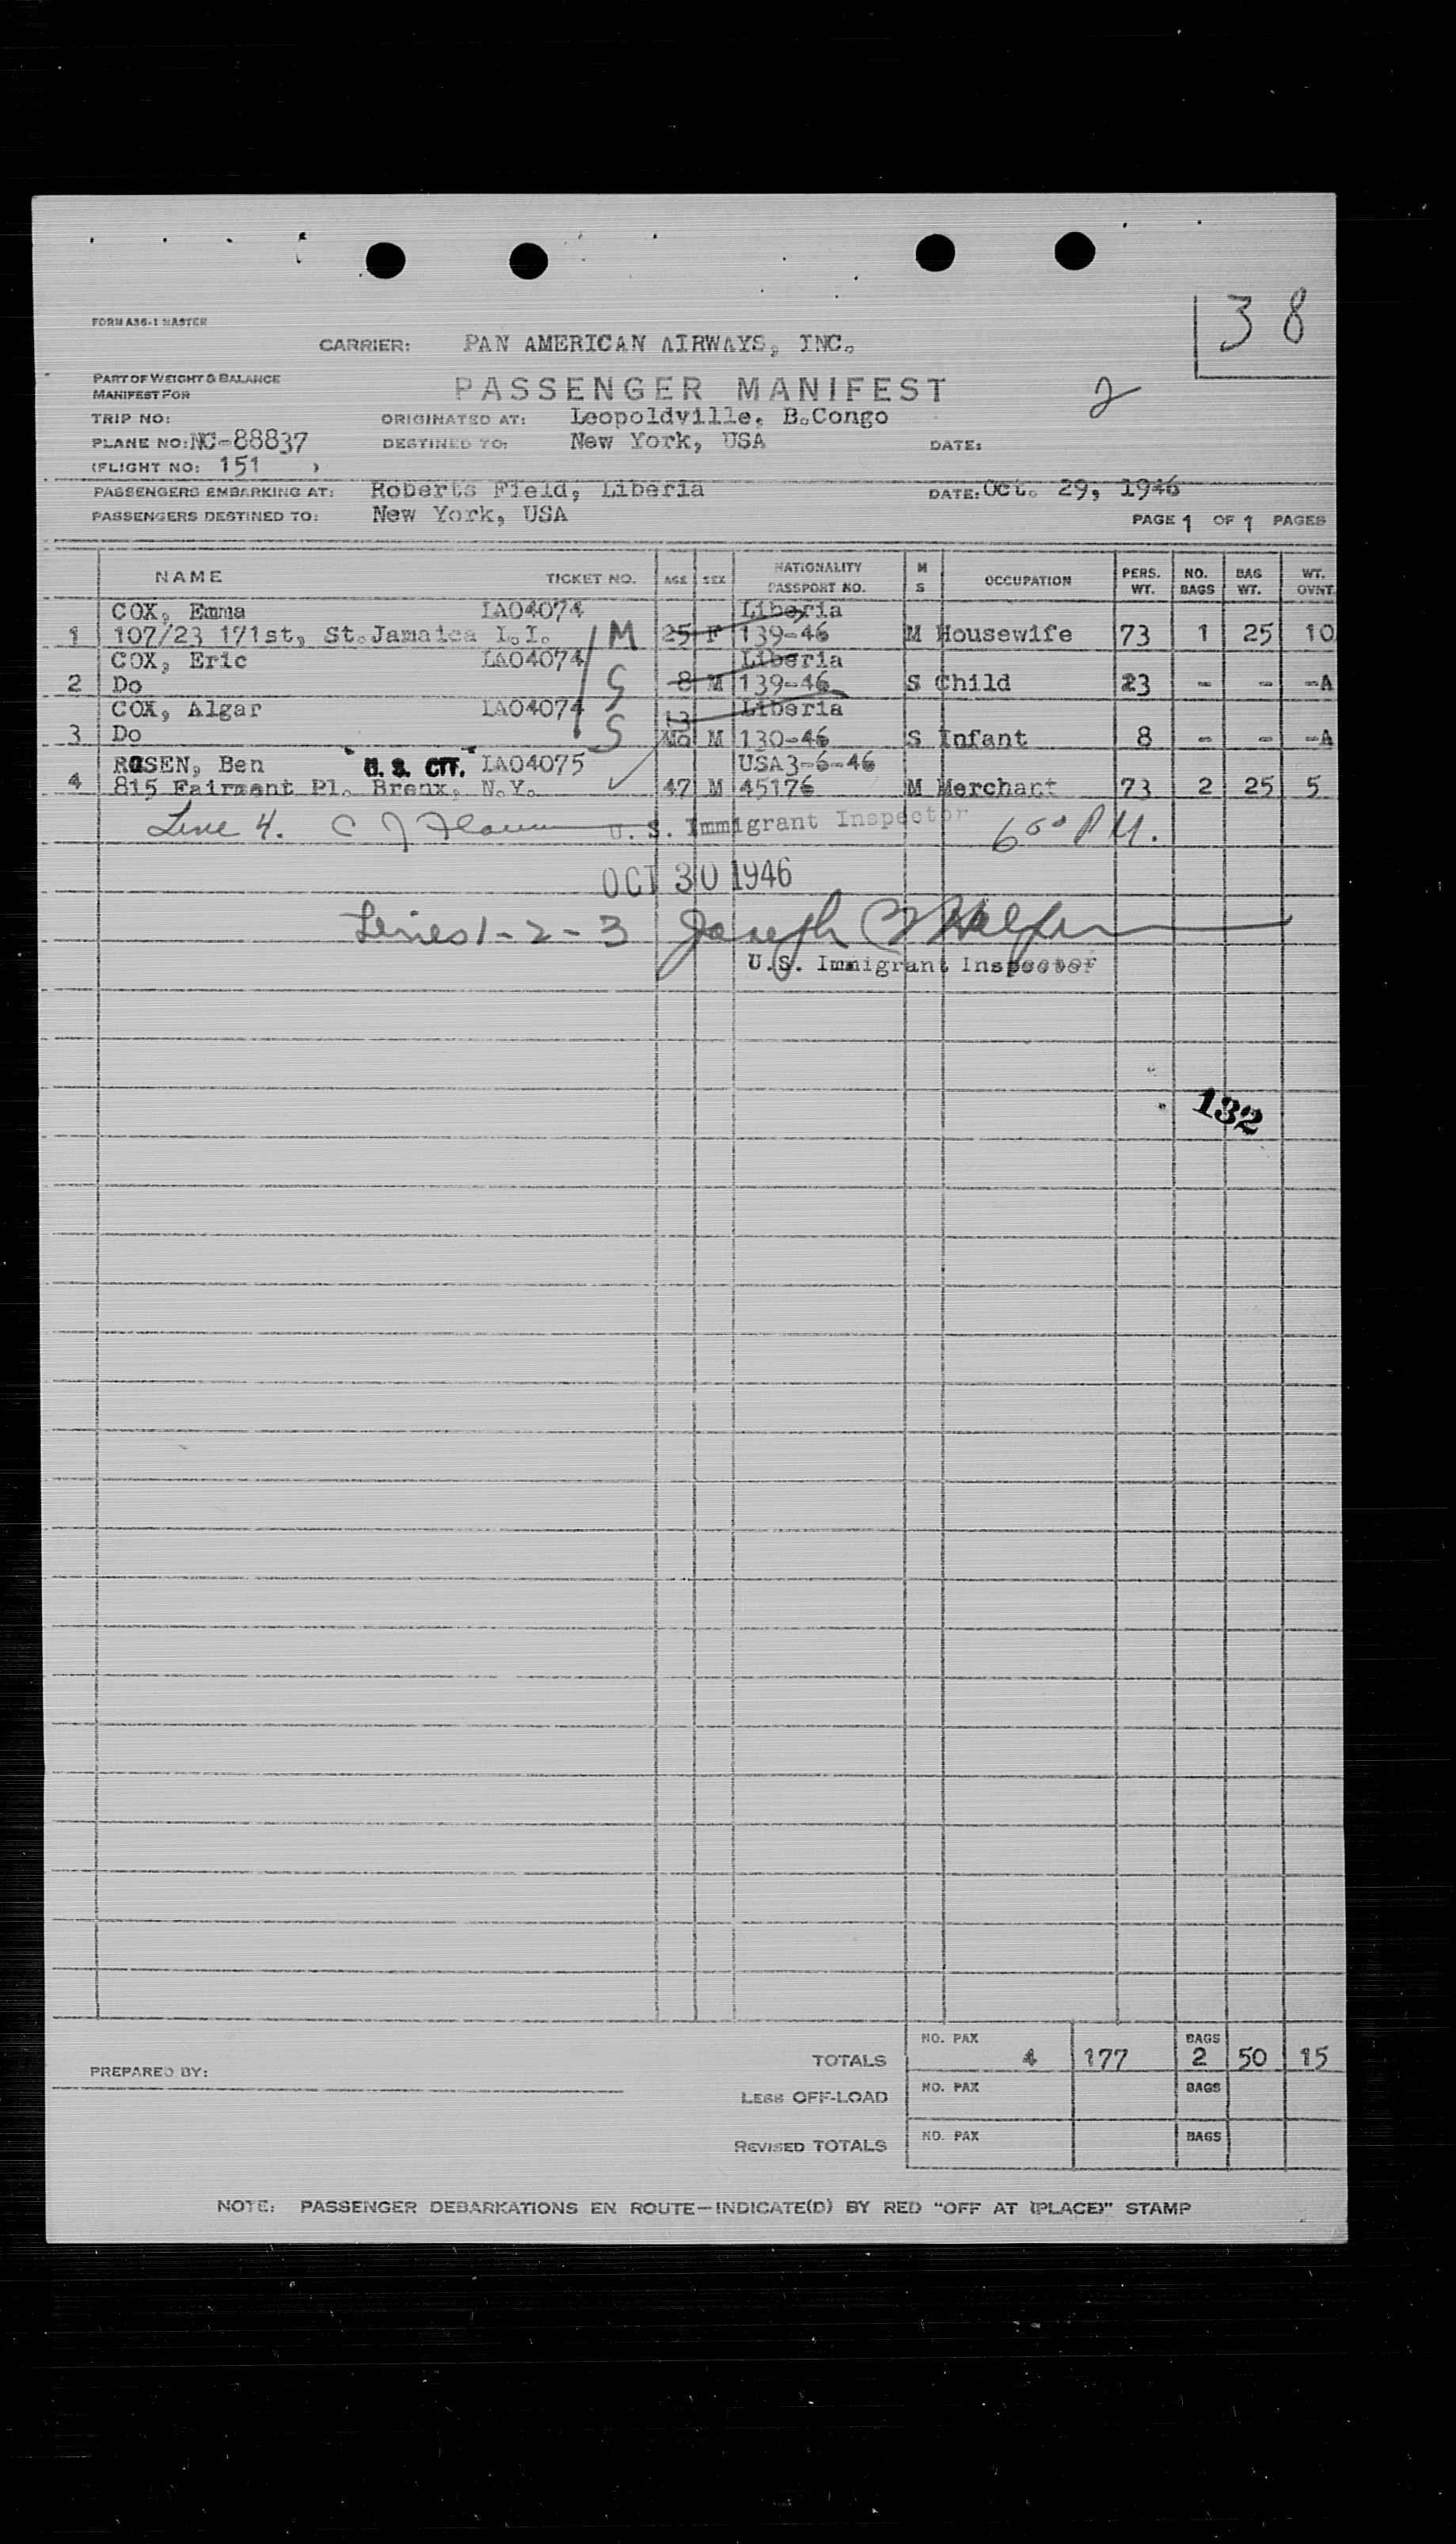 38
FORM A36-1 MASTER
CARRIER: PAN AMERICAN AIRWAYS, INC.
PART OF WEIGHT & BALANCE
MANIFEST FOR
PASSENGER MANIFEST
2
TRIP NO:
ORIGINATED AT: Leopoldville, B.Congo
PLANE NO: NC-88837
DESTINED TO: New York, USA
DATE:
(FLIGHT NO: 151 )
PASSENGERS EMBARKING AT: Roberts Field, Liberia DATE: Oct. 29, 1946
PASSENGERS DESTINED TO: New York, USA
PAGE 1 OF 1 PAGES
NAME TICKET NO. AGE SEX NATIONALITY PASSPORT NO. M S OCCUPATION PERS. WT. NO. BAGS BAG WT. WT. OVNT
COX, Emma IA04074 Liberia
1 107/23 171st, St.Jamaica L.I. M 25 F 139-46 M Housewife 73 1 25 10
COX, Eric IA04074 Liberia
2 Do S 8 M 139-46 S Child 23 - - -A
COX, Algar IA04074 13 Liberia
3 Do S Mo M 130-46 S Infant 8 - - -A
ROSEN, Ben U. S. CIT. IA04075 USA3-6-46
4 815 Fairmont Pl. Bronx, N.Y. 47 M 45176 M Merchant 73 2 25 5
Line 4. U. S. Immigrant Inspector 6 00 P.M.
OCT 30 1946
Lines 1-2-3 Joseph
U.S. Immigrant Inspector
132
TOTALS NO. PAX 4 177 BAGS 2 50 15
PREPARED BY:
LESS OFF-LOAD NO. PAX BAGS
REVISED TOTALS NO. PAX BAGS
NOTE: PASSENGER DEBARKATIONS EN ROUTE—INDICATE(D) BY RED "OFF AT (PLACE)" STAMP